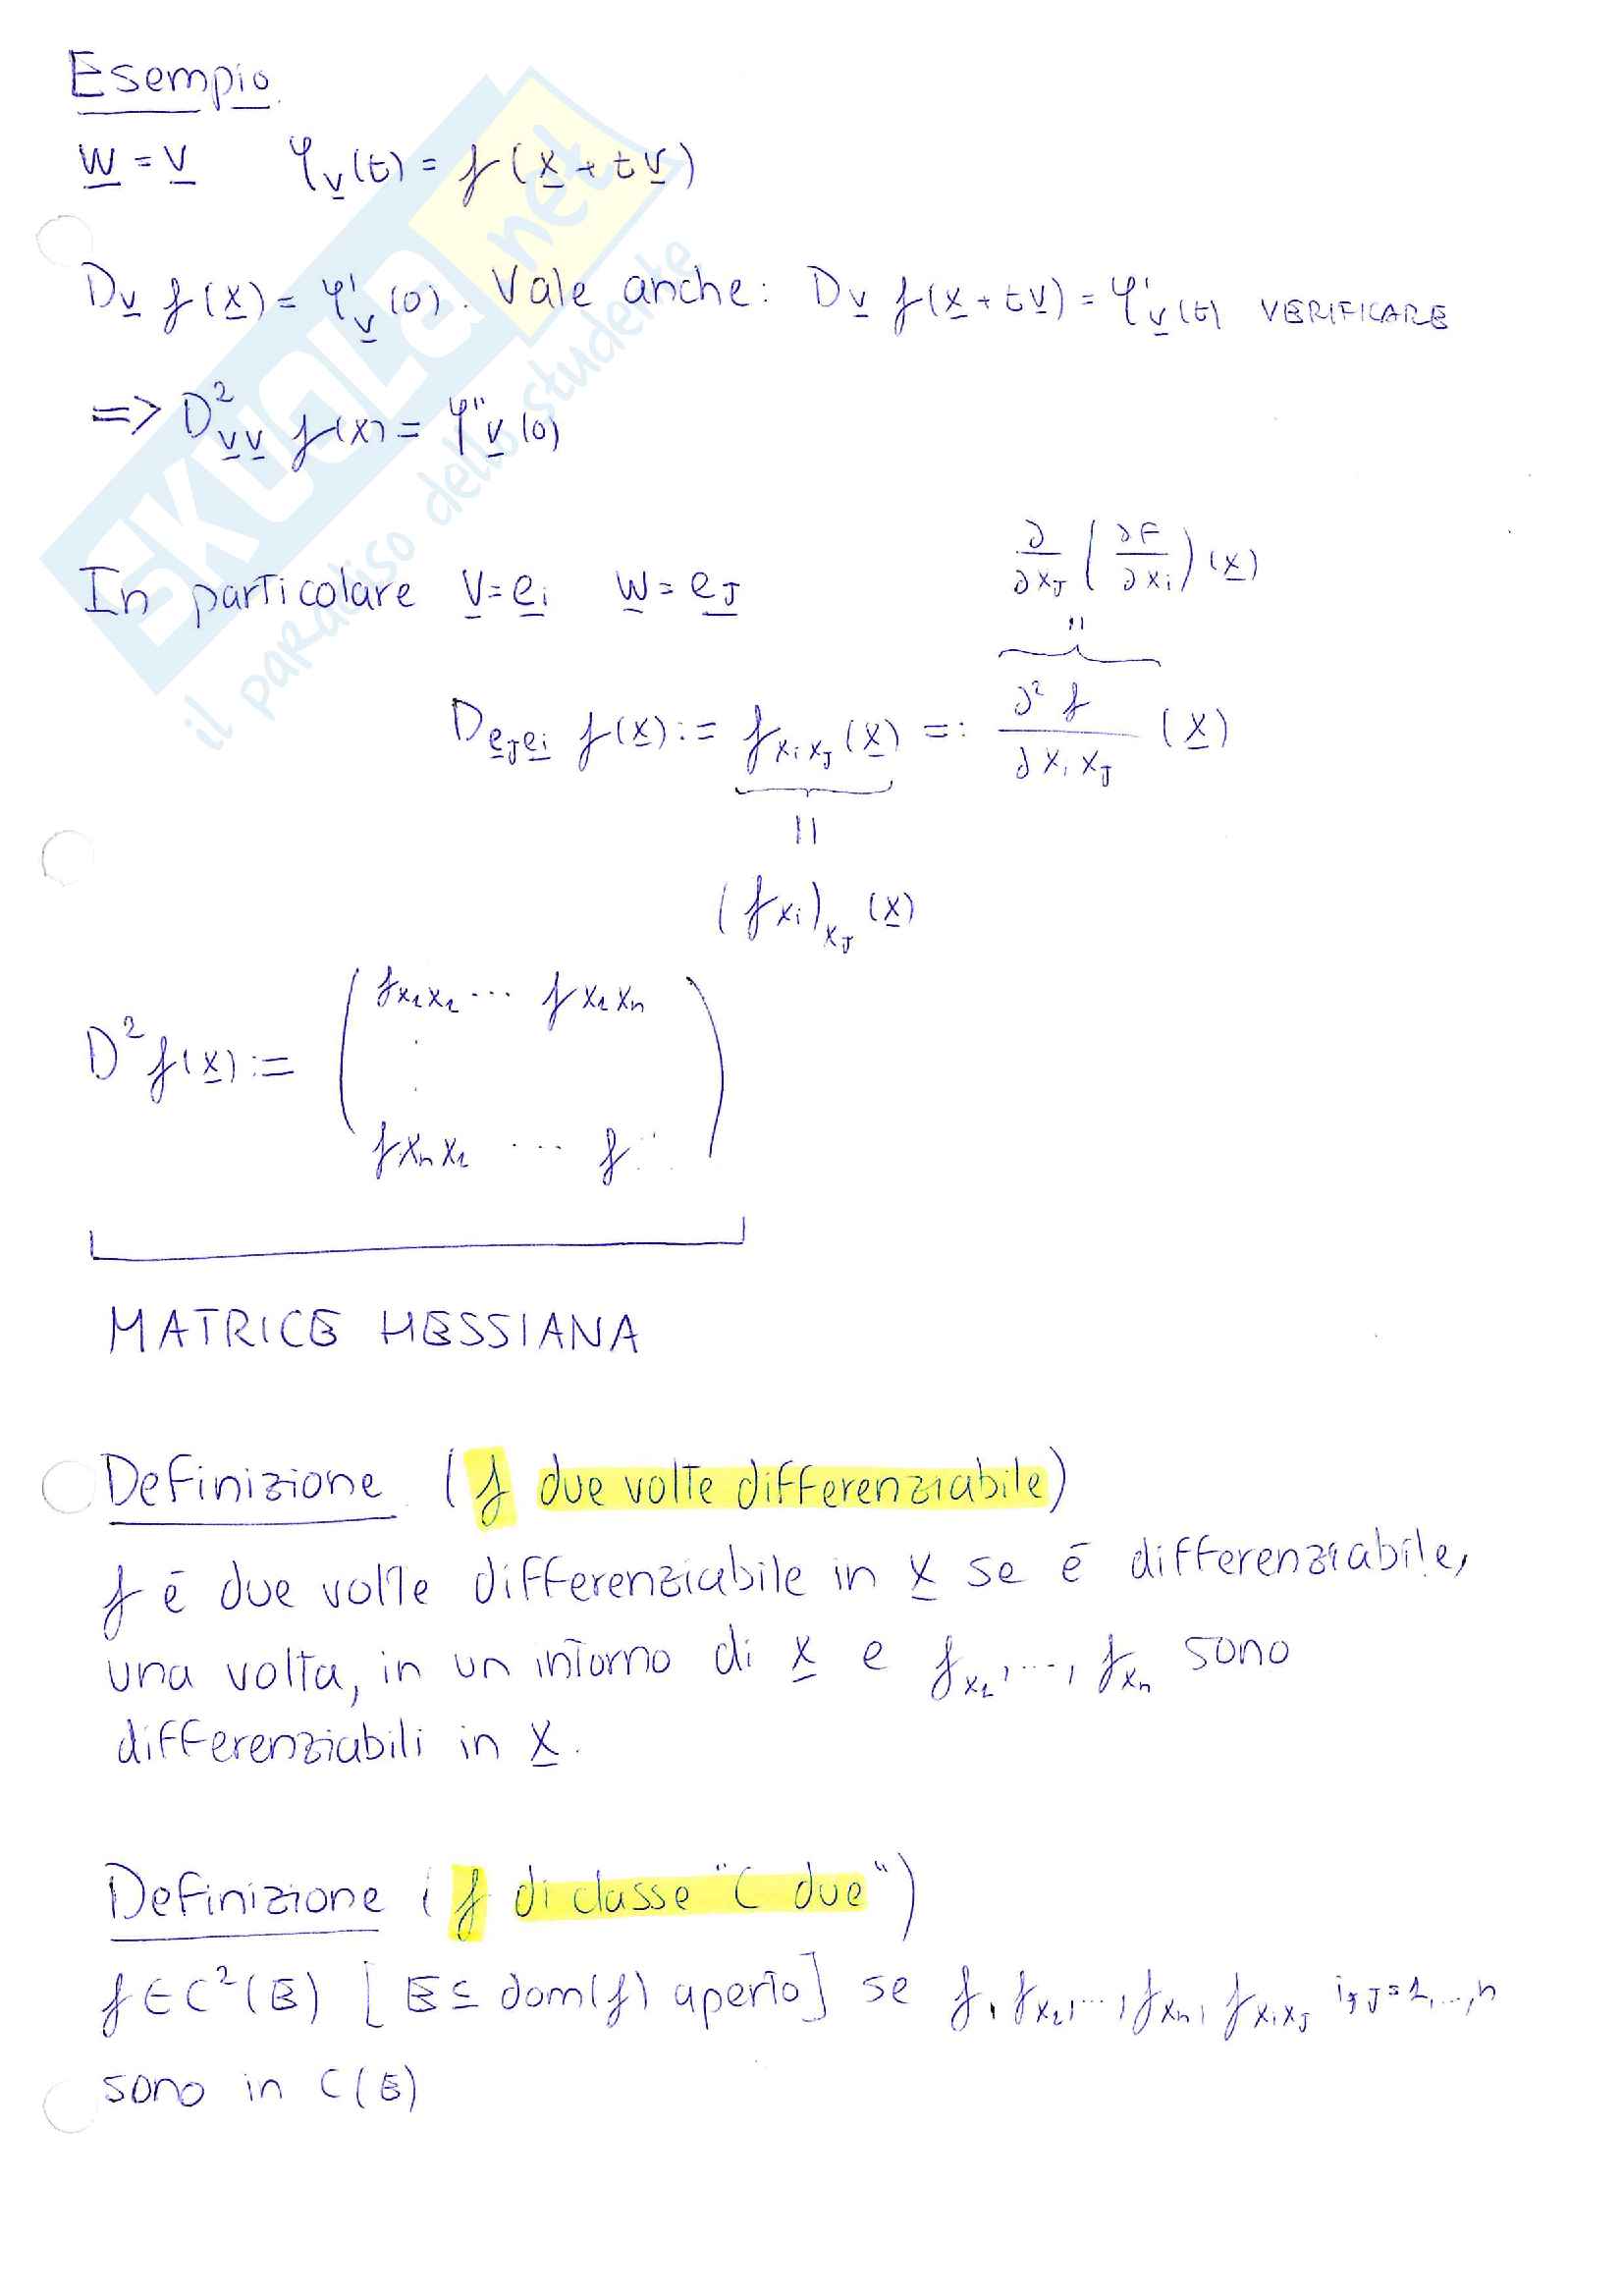 Esempio
w = v φ_v(t) = f(x + tv)
D_v f(x) = φ'_v(0). Vale anche: D_v f(x + tv) = φ'_v(t) VERIFICARE
=> D²_vv f(x) = φ''_v(0)
∂/∂x_J (∂F/∂x_i) (x)
In particolare v = e_i w = e_J
"
D_{e_J e_i} f(x) := f_{x_i x_J}(x) =: ∂²f/∂x_i x_J (x)
||
(f_{x_i})_{x_J} (x)
D²f(x) := ( f_{x_1 x_1} ... f_{x_1 x_n}
f_{x_n x_1} ... f... )
MATRICE HESSIANA
Definizione (f due volte differenziabile)
f ē due volte differenziabile in x se ē differenziabile,
una volta, in un intorno di x e f_{x_1}, ..., f_{x_n} sono
differenziabili in x.
Definizione (f di classe "C due")
f ∈ C²(E) [E ⊆ dom(f) aperto] se f, f_{x_1}, ..., f_{x_n}, f_{x_i x_J} i, J = 1, ..., n
sono in C(E)
SKUOLA.net
il paradiso dello studente